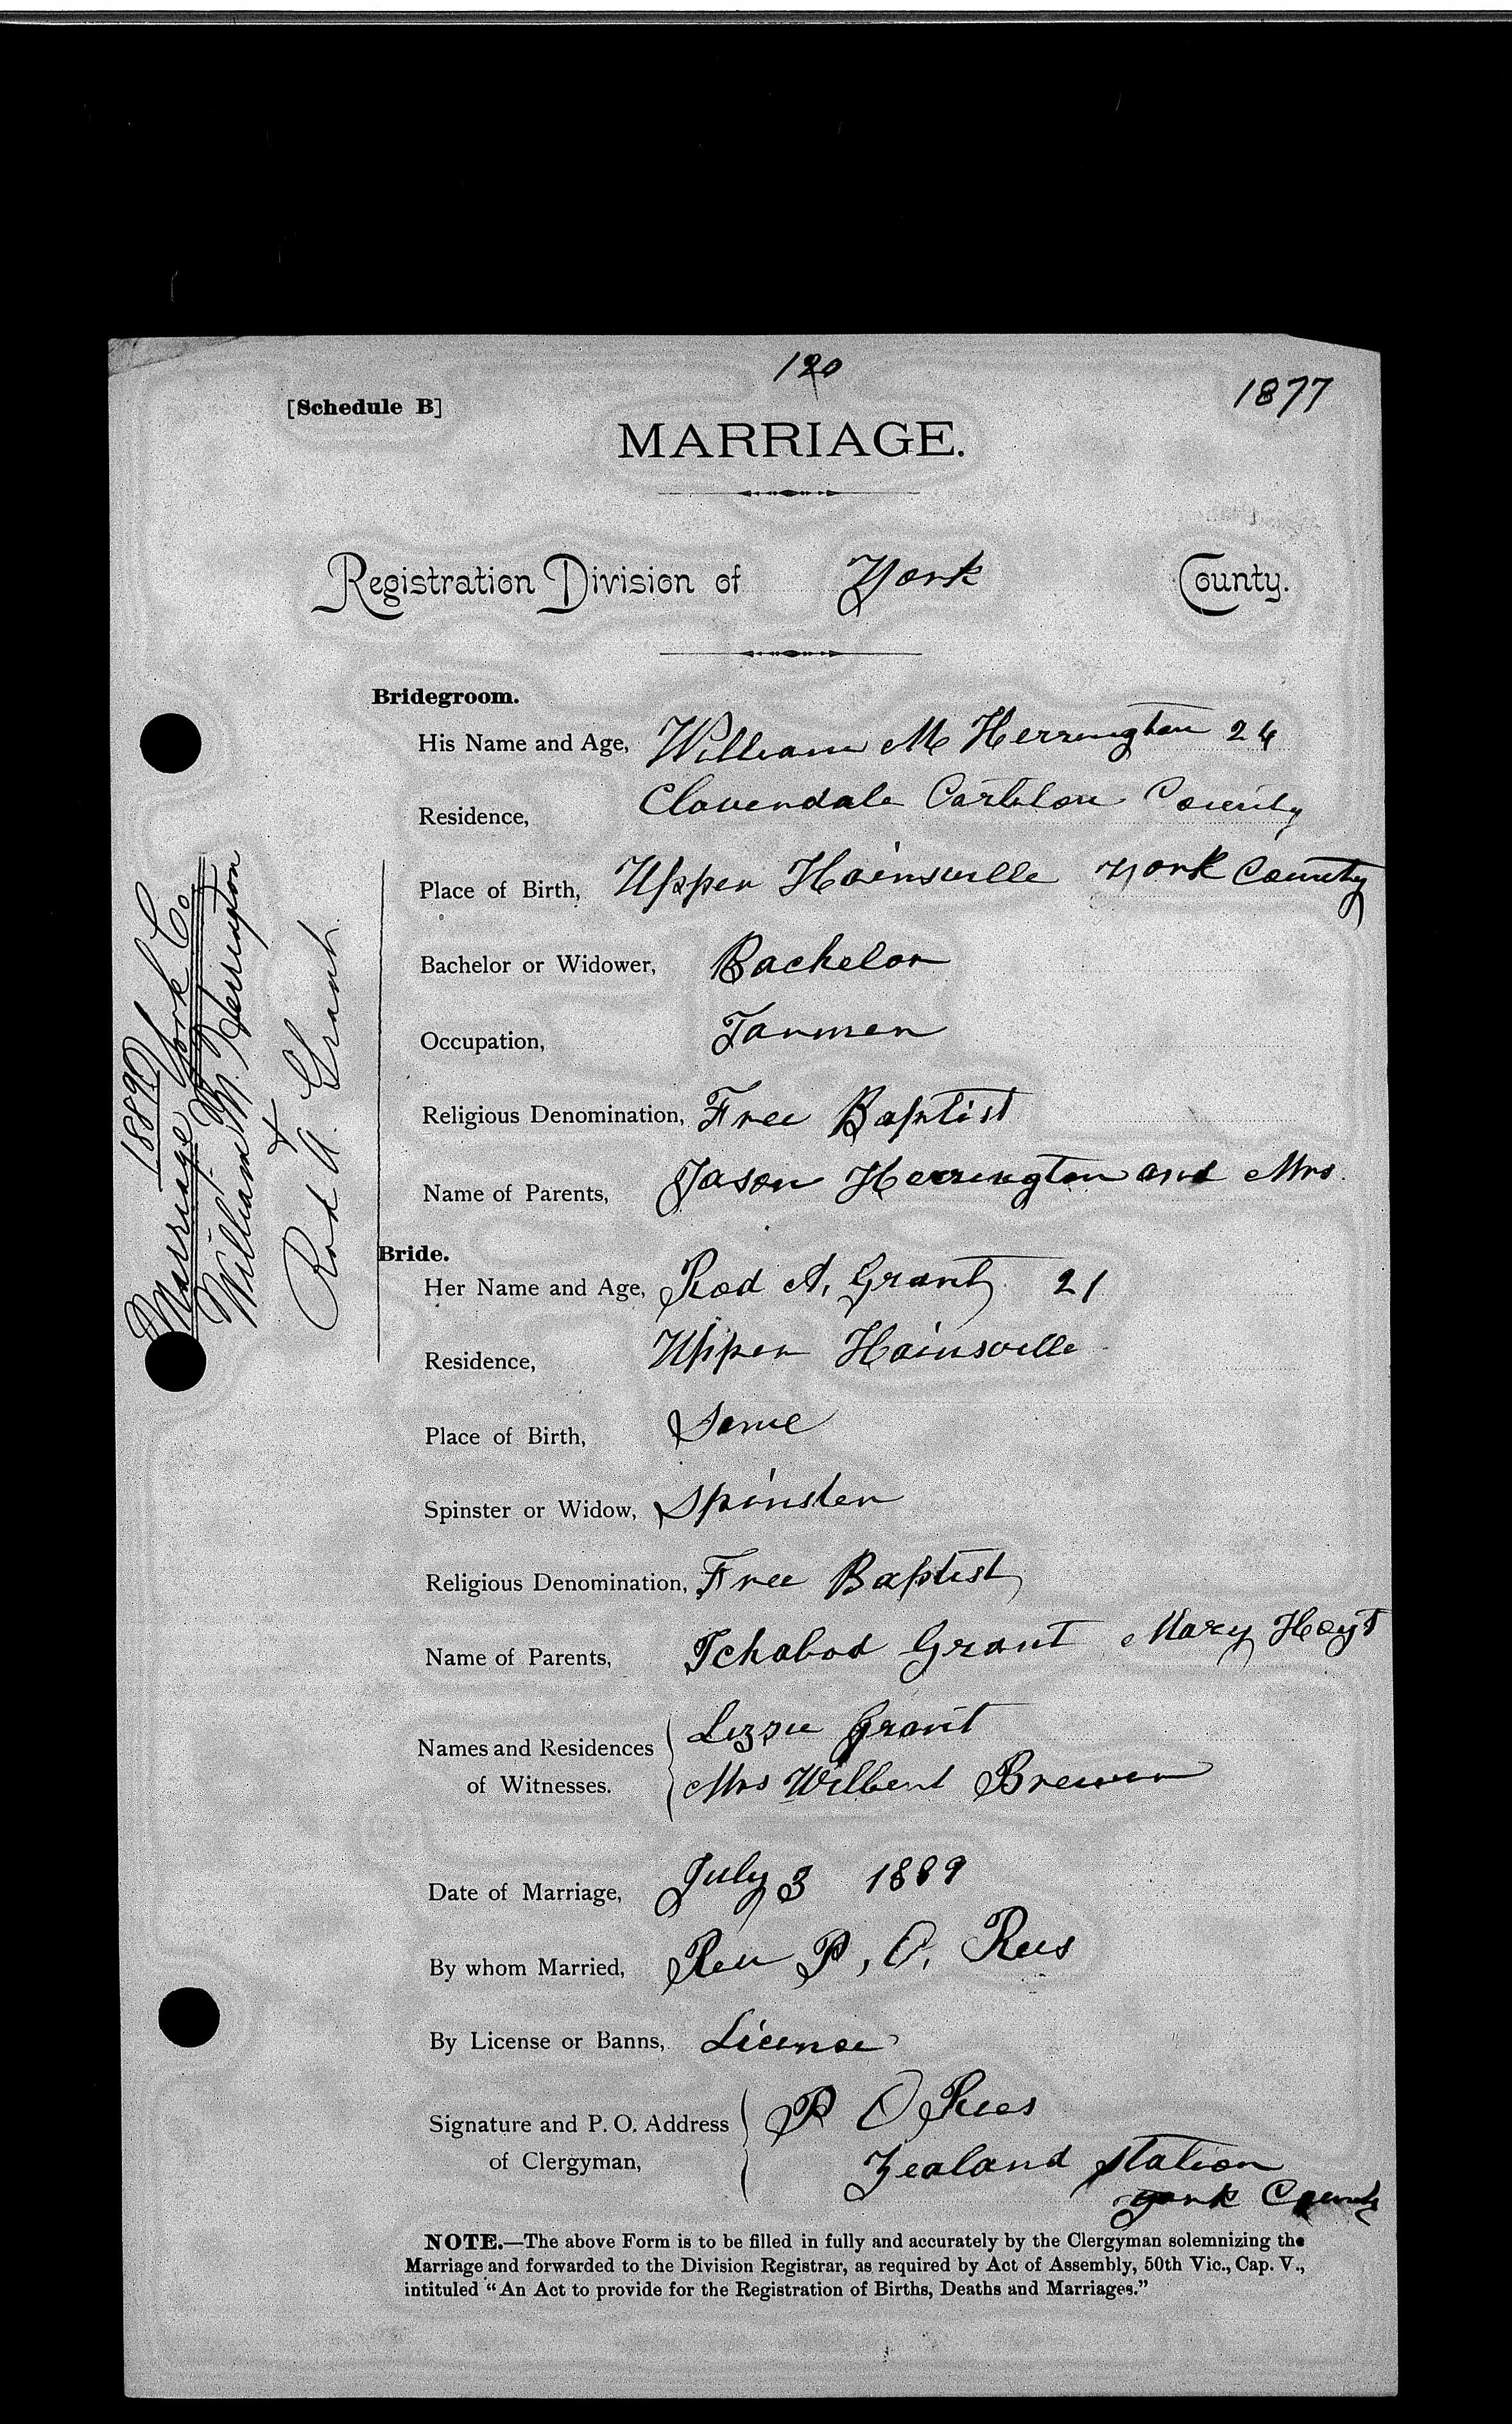 120
1877
[Schedule B]
MARRIAGE.
Registration Division of York County.
Bridegroom.
His Name and Age, William M Herrington 24
Residence, Cloverdale Carleton County
Place of Birth, Upper Hainsville York County
Bachelor or Widower, Bachelor
Occupation, Farmer
Religious Denomination, Free Baptist
Name of Parents, Jason Herrington and Mrs.
Bride.
Her Name and Age, Rod A, Grant 21
Residence, Upper Hainsville
Place of Birth, Same
Spinster or Widow, Spinster
Religious Denomination, Free Baptist
Name of Parents, Ichabod Grant Mary Hoyt
Names and Residences of Witnesses. Lizzie Grant
Mrs Wilbert Brewer
Date of Marriage, July 3 1889
By whom Married, Rev P, O, Rees
By License or Banns, License
Signature and P. O. Address of Clergyman, P O Rees
Zealand Station
York County
NOTE.—The above Form is to be filled in fully and accurately by the Clergyman solemnizing the
Marriage and forwarded to the Division Registrar, as required by Act of Assembly, 50th Vic., Cap. V.,
intituled "An Act to provide for the Registration of Births, Deaths and Marriages."
1889
Marriage York Co
William M. Herrington
+
Rod A. Grant